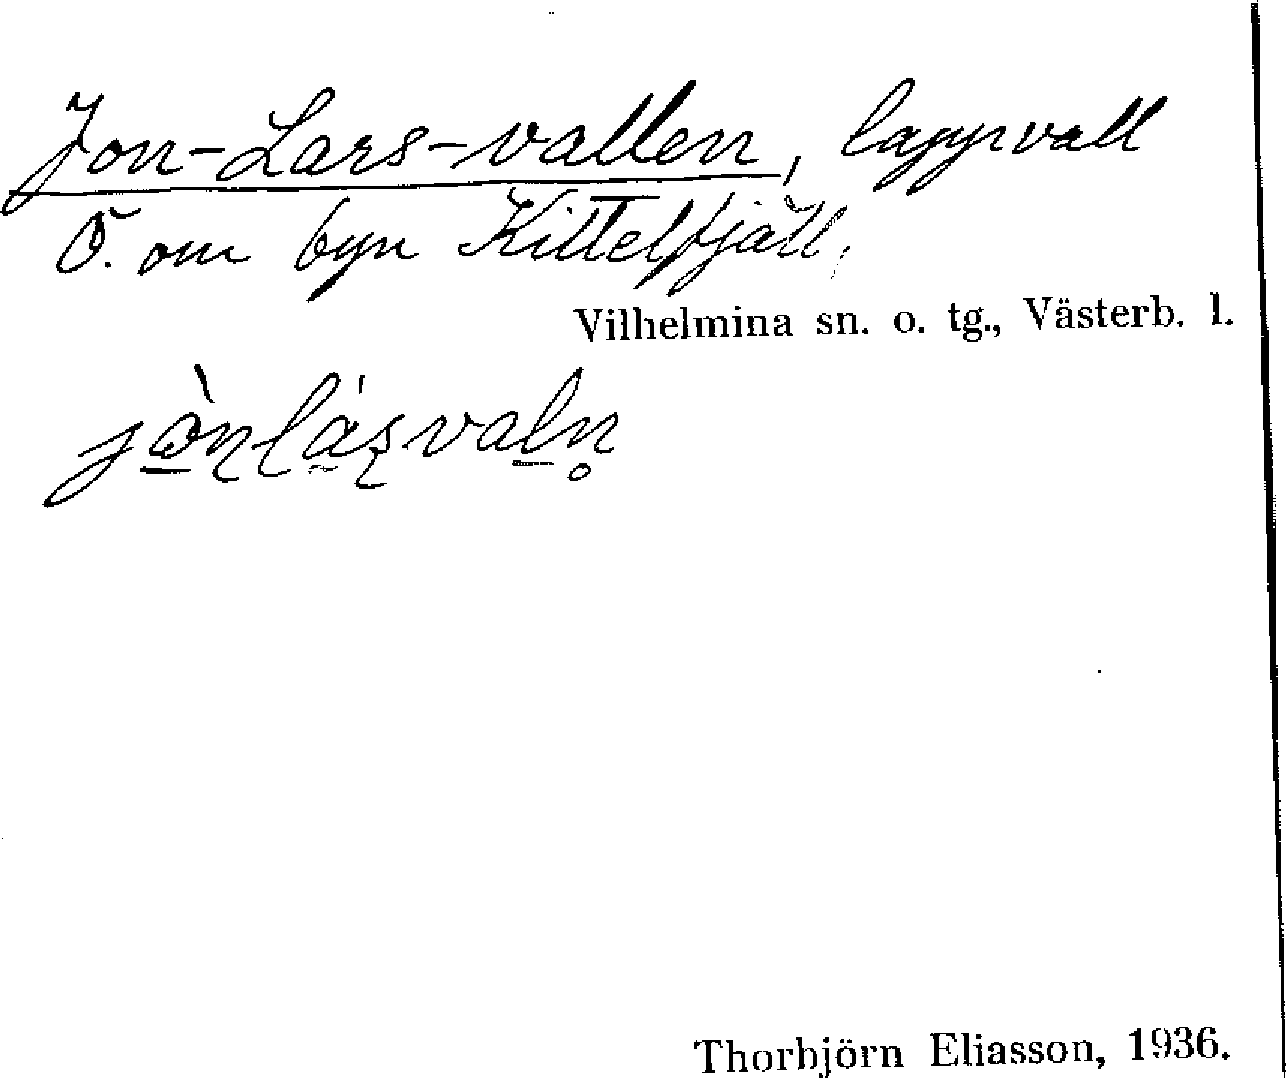 Jon-Lars-vallen, lappvall
Ö. om byn Kittelfjäll,
Vilhelmina sn. o. tg., Västerb. l.
Thorbjörn Eliasson, 1936.